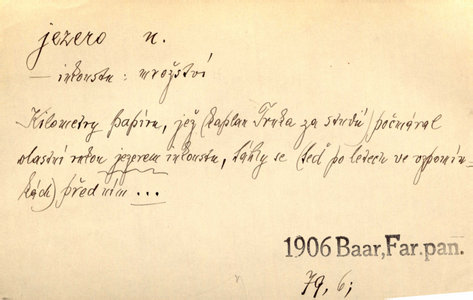 jezero n.
— inkoustu : množství
Kilometry papíru, jež (kaplan Trnka za studií) počmáral
vlastní rukou jezerem inkoustu, táhly se (teď po letech ve vzpomín-
kách) před ním ...
1906 Baar, Far. pan.
79, 6;